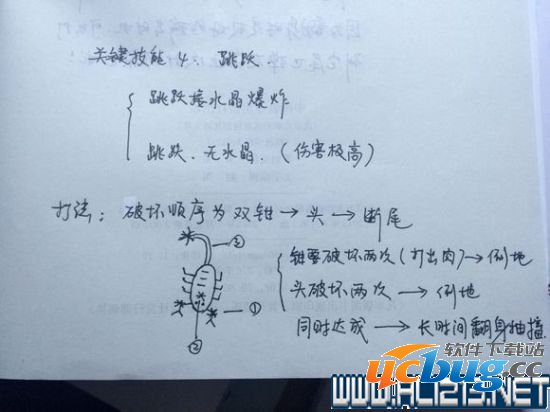 关键技能4、跳跃.
跳跃接水晶爆炸
跳跃、无水晶.(伤害极高)
打法:破坏顺序为双钳→头→断尾
③
钳要破坏两次(打出肉)→倒地
头破坏两次→倒地
①
同时达成→长时间翻身抽搐
②
软件下载站
ucbug.cc
WWW.ALI213.NET